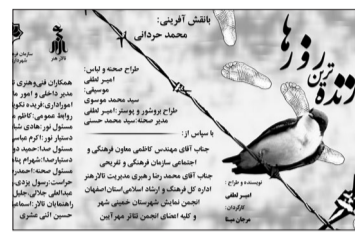 زنده ترین روزها
نویسنده و طراح :
کارگردان:
مرجان مینا
بانقش آفرینی:
محمد حردانی
طراح صحنه و لباس:
امیر لطفی
موسیقی:
سید محمد موسوی
طراح بروشور و پوستر: امیر لطفی
مدیر صحنه: سید محمد حسنی
با سپاس از:
جناب آقای مهندس کاظمی معاون فرهنگی و
اجتماعی سازمان فرهنگی و تفریحی
جناب آقای محمد رضا رهبری مدیریت تالارهنر
اداره کل فرهنگ و ارشاد اسلامی استان اصفهان
انجمن نمایش شهرستان خمینی شهر
و کلیه اعضای انجمن تئاتر مهرآیین
تالار هنر
همکاران فنی وهنری
مدیر داخلی و امور
امور اداری: فریده
روابط عمومی: کاظم
مسئول نور: هادی
دستیار نور: اکرم
مسئول صدا: حمید
دستیار صدا: شهرام
مسئول صحنه: احمد
حراست: رسول یزدی
عبدالعلی جلالی، جلیل
راهنمایان تالار: اسماعیل
حسین اثنی عشری